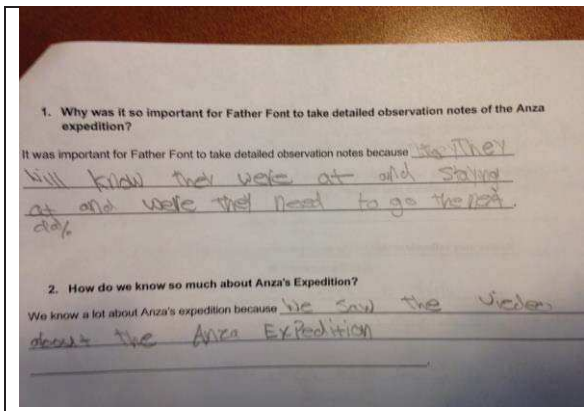 1. Why was it so important for Father Font to take detailed observation notes of the Anza
expedition?
It was important for Father Font to take detailed observation notes because They
will know they were at and staying
at and were they need to go the next
day
2. How do we know so much about Anza's Expedition?
We know a lot about Anza's expedition because We saw the
about the Anza Expedition